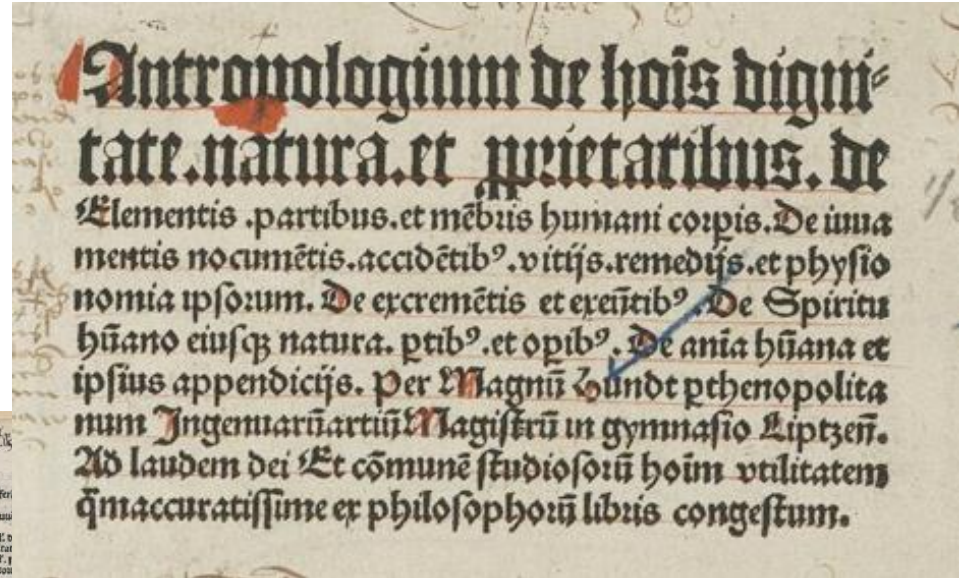 Antropologium de hoīs digni⸗
tate.natura.et ꝓprietatibus. de
Elementis .partibus.et mēbris humani corpꝭs.De iuua
mentis nocumētis.accidētibꝰ.vitijs.remedijs.et physio
nomia ipsorum. De excremētis et exeūtibꝰ .De Spiritu
hūano eiusqꝫ natura. ꝑtibꝰ.et oꝑibꝰ. De aīa hūana et
ipsius appendicijs. Per Magnū Hundt ꝑthenopolita
num Ingenuarū artiū Magistrū in gymnasio Liptzen̄.
Ad laudem dei Et cōmunē studiosorū hoīm vtilitatem
q̄maccuratissime ex philosophorū libris congestum.